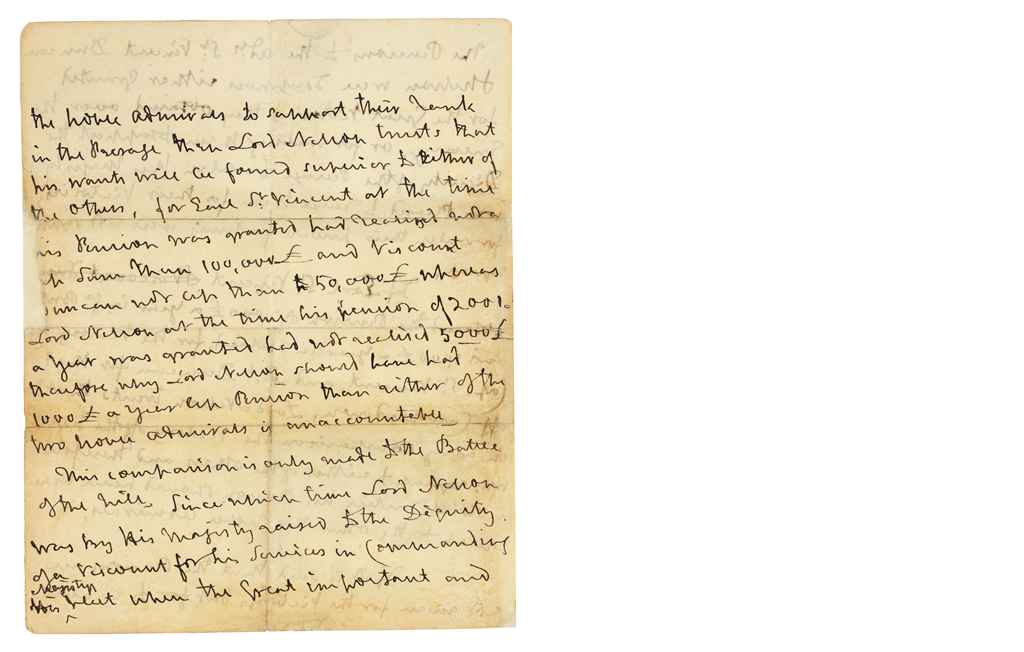 the noble admirals to support their rank
in the Peerage than Lord Nelson trusts that
his wants will be found superior to Either of
the others, for Earl St. Vincent at the time
his Pension was granted had realised not a
Sum than 100,000£ and Viscount
Duncan not less than 50,000£ whereas
Lord Nelson at the time his pension of 2001
a Year was granted had not realised 5000£
therefore why Lord Nelson should have had
1000£ a Year less Pension than either of the
two noble admirals is unaccountable
This comparison is only made to the Battle
of the Nile, Since which time Lord Nelson
was by His Majesty raised to the Dignity
of a Viscount for his Services in Commanding
Majestys
His fleet when the great important and